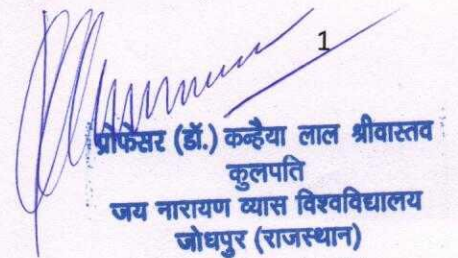 1
प्रोफेसर (डॉ.) कन्हैया लाल श्रीवास्तव
कुलपति
जय नारायण व्यास विश्वविद्यालय
जोधपुर (राजस्थान)